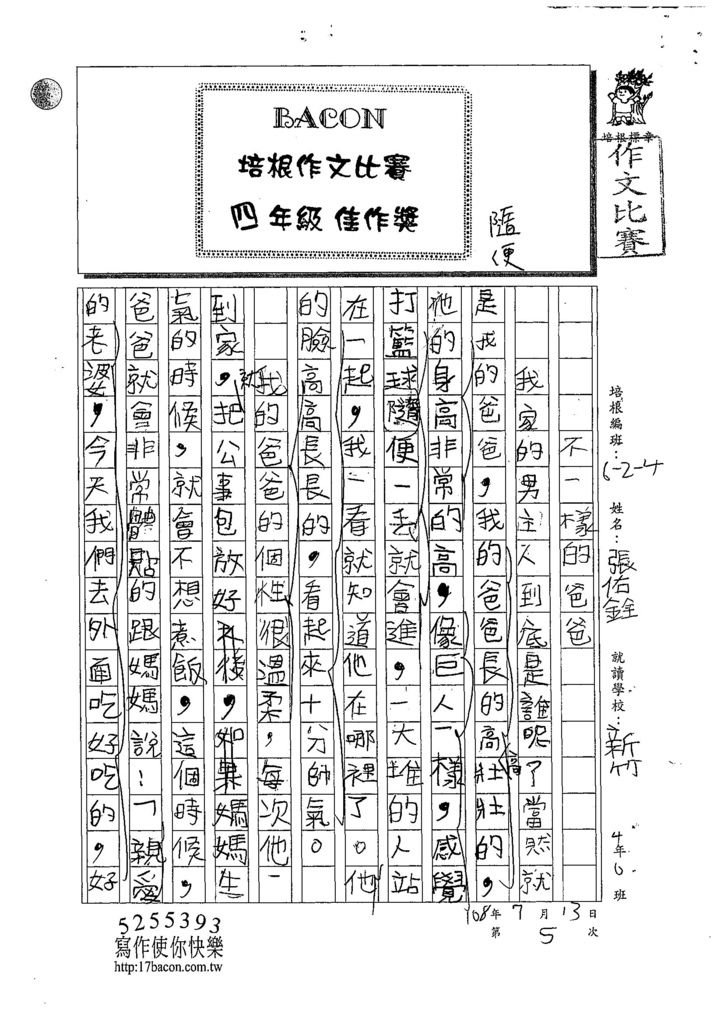 BACON
培根作文比賽
四年級 佳作獎
隨便
培根標章
作文比賽
培根編班：6-2-4 姓名：張佑銓 就讀學校：新竹 4年6班
108年7月13日
第5次
不一樣的爸爸
我家的男主人到底是誰呢？當然就
是我的爸爸，我的爸爸長的高高壯壯的，
他的身高非常的高，像巨人一樣，感覺
打籃球隨便一丟就會進，一大堆的人站
在一起，我一看就知道他在哪裡了。他
的臉高高長長的，看起來十分帥氣。
我的爸爸的個性很溫柔，每次他一
到家，就把公事包放好之後，如果媽媽生
氣的時候，就會不想煮飯，這個時候，
爸爸就會非常體貼的跟媽媽說：「親愛
的老婆，今天我們去外面吃好吃的，好
5255393
寫作使你快樂
http:17bacon.com.tw